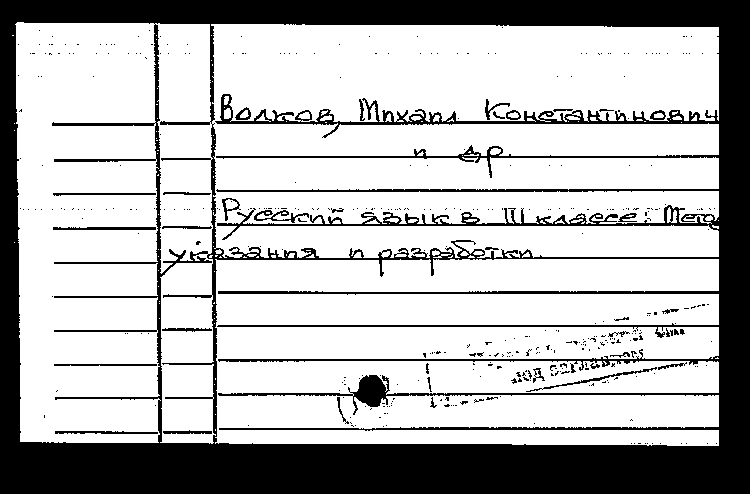 Волков, Михаил Константинович
и др.
Русский язык в III классе: Метод
указания и разработки.
под заглавием